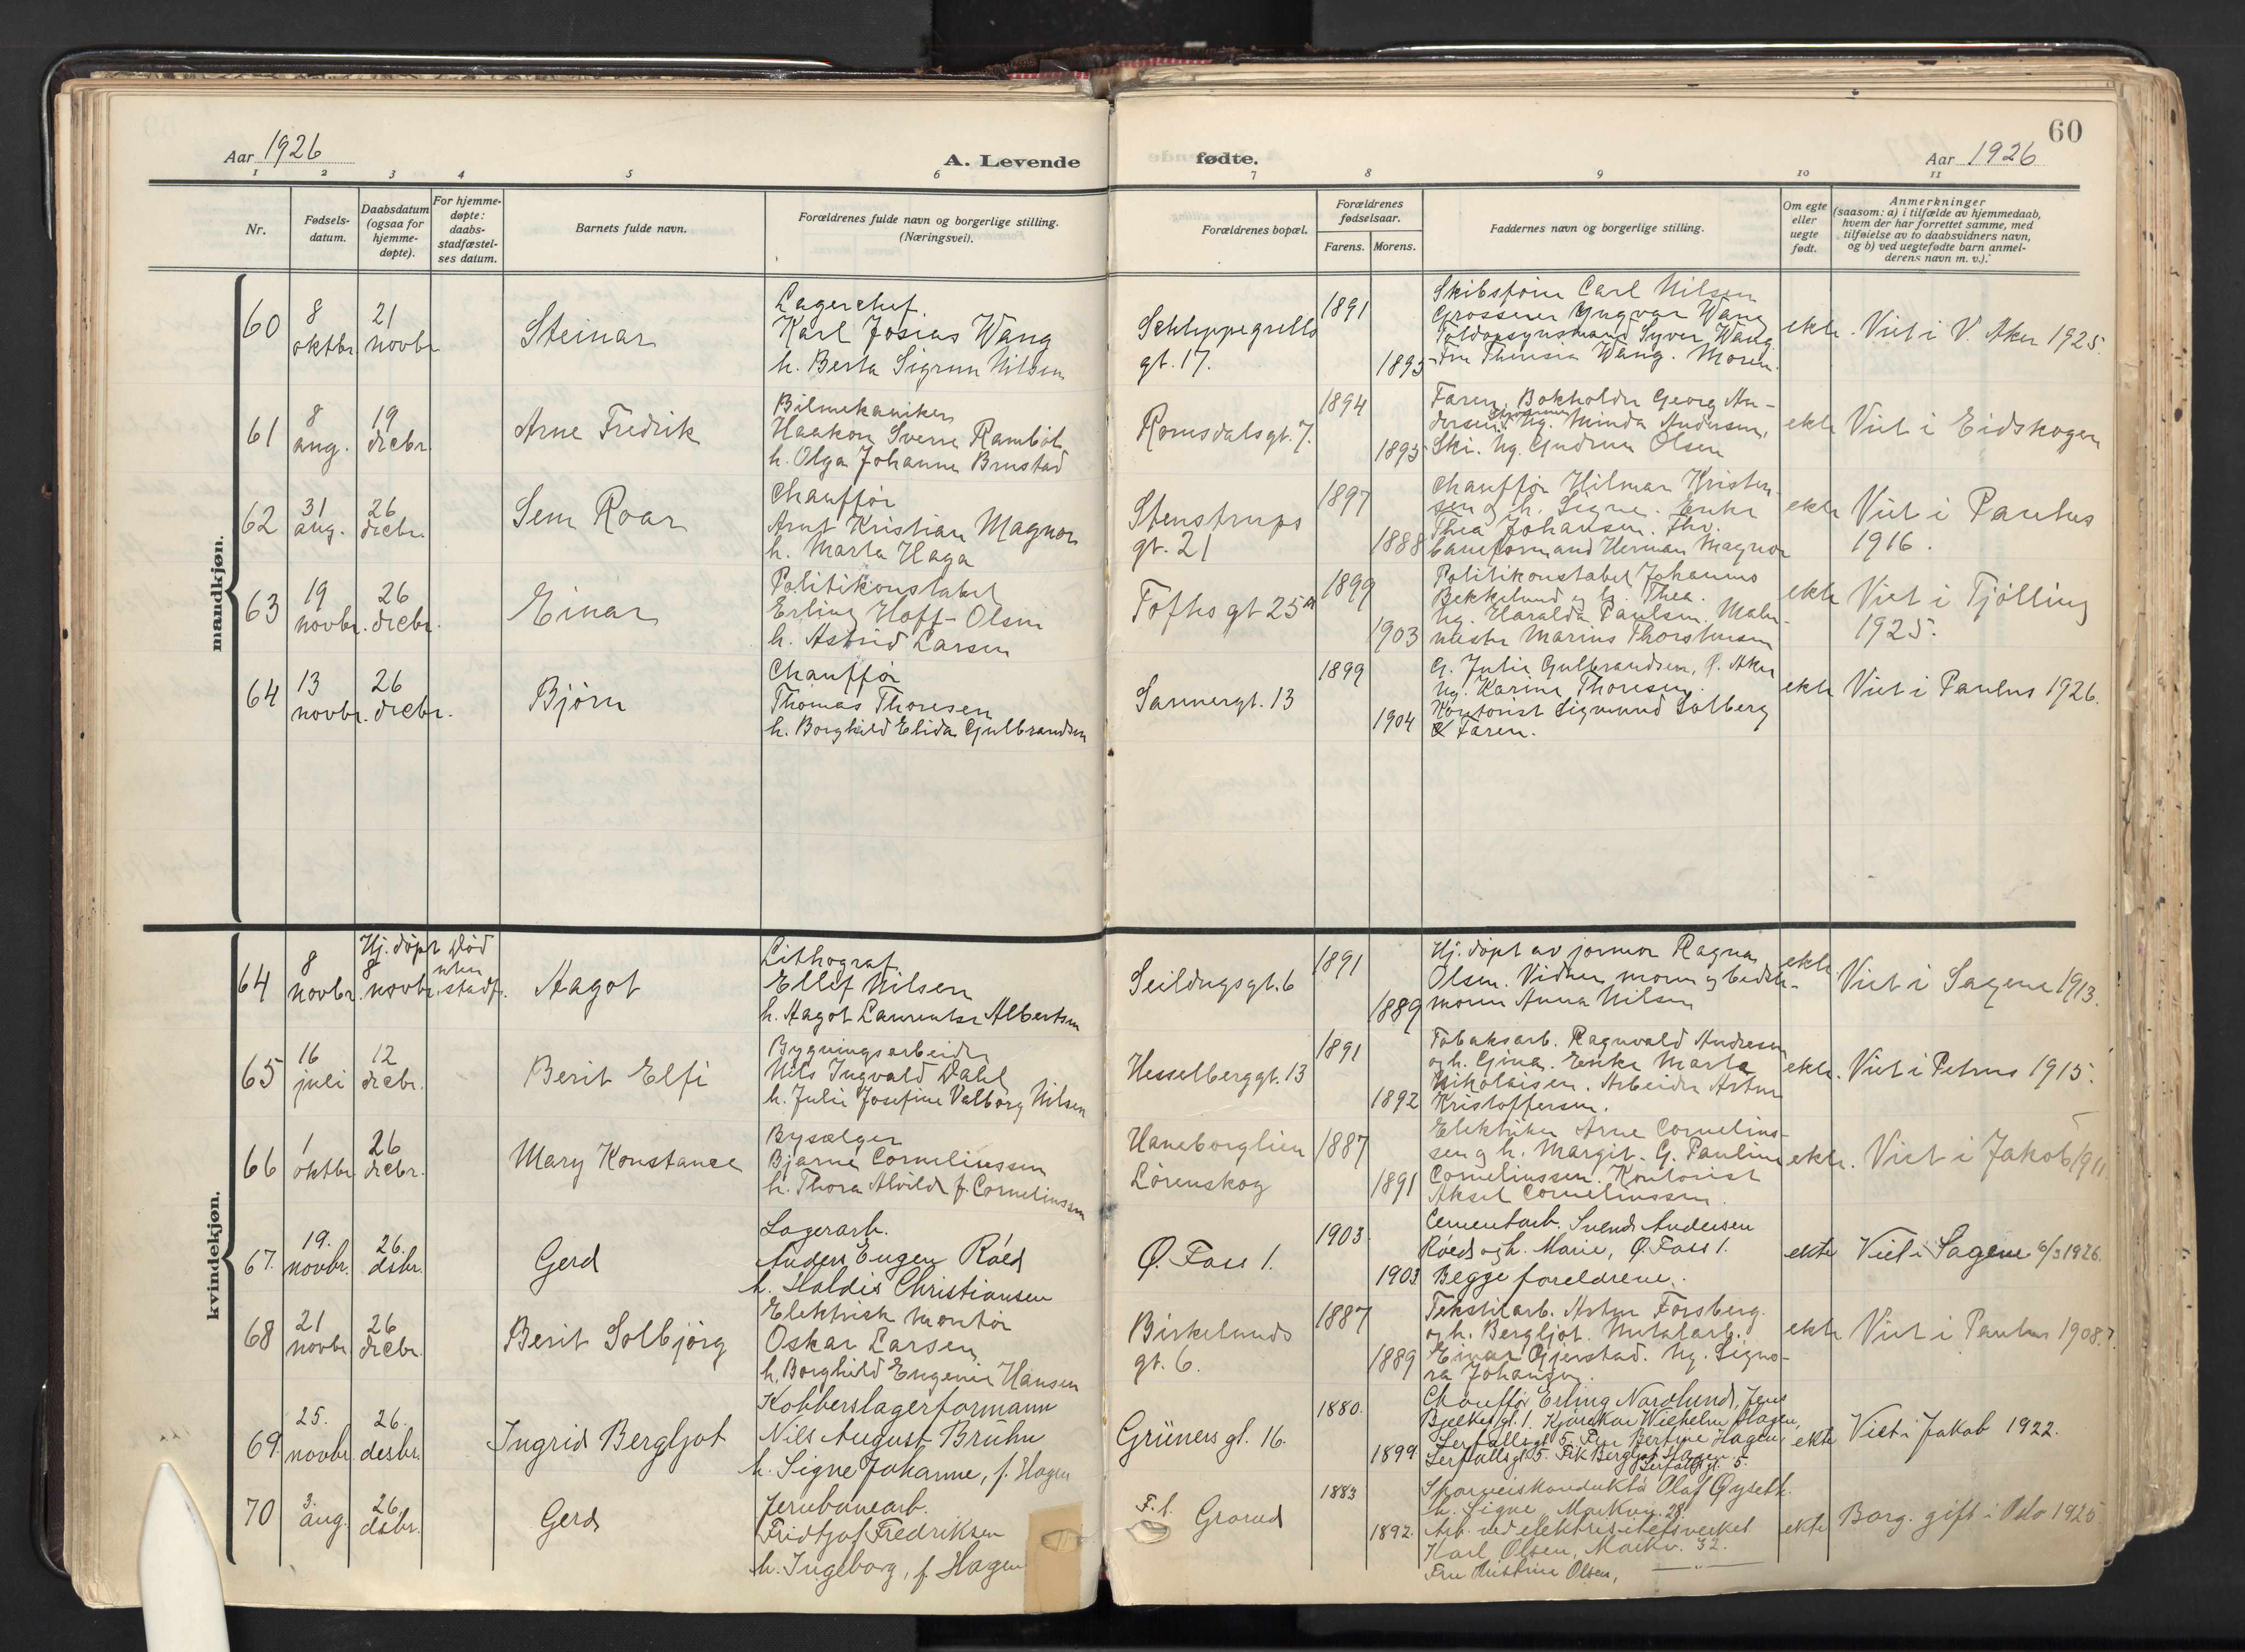 60
Aar 1926
A. Levende
fødte.
Aar 1926
1 2 3 4 5 6 7 8 9 10 11
Nr.
Fødsels-
datum.
Daabsdatum
(ogsaa for
hjemme-
døpte).
For hjemme-
døpte:
daabs-
stadfæstel-
ses datum.
Barnets fulde navn.
Forældrenes fulde navn og borgerlige stilling.
(Næringsvei).
Forældrenes bopæl.
Forældrenes
fødselsaar.
Farens. Morens.
Faddernes navn og borgerlige stilling.
Om egte
eller
uegte
født.
Anmerkninger
(saasom: a) i tilfælde av hjemmedaab,
hvem der har forrettet samme, med
tilføielse av to daabsvidners navn,
og b) ved uegtefødte barn anmel-
derens navn m. v.).
mandkjøn.
60
8
oktbr.
21
novbr
Steinar
Lagerchef.
Karl Josias Wang
h. Berta Sigrun Nilsen
Schleppegrells
gt. 17.
1891
1895
Carl Nilsen
Grosserer Yngvar Wang
Toldopsynsmand Syver Wang.
Fru Wang. Moren.
ekte.
Viet i V. Aker 1925.
61
8
aug.
19
decbr.
Arne Fredrik
Bilmekaniker
Haakon Sverre Rambøl
h. Olga Johanne Brustad
Romsdalsgt. 7.
1894
1895
Faren. Bokholder Georg An-
dersen. Minda Andersen,
Ski. Ug. Gudrun Olsen
ekte
Viet i Eidskogen
62
31
aug.
26
decbr.
Sem Roar
Chauffør
Arnt Kristian Magnor
h. Marta Haga
Stenstrups
gt. 21
1897
1888
Chauffør Hilmar Kristen-
sen og h. Signe. Enke
Thea Johansen.
baneformand Herman Magnor
ekte
Viet i Paulus
1916.
63
19
novbr.
26
decbr.
Einar
Politikonstabel
Erling Hoff-Olsen
h. Astrid Larsen
Toftes gt 25a
1899
1903
Politikonstabel Johannes
Bekkelund og h. Thea.
Ug. Haralda Paulsen. Maler-
mester Marius Thorstensen
ekte
Viet i Tjølling
1925.
64
13
novbr.
26
decbr.
Bjørn
Chauffør
Thomas Thoresen
h. Borghild Elida Gulbrandsen
Sannergt. 13
1899
1904
G. Julie Gulbrandsen, Ø. Aker
Ug. Karine Thoresen.
Kontorist Sigmund Solberg
& Faren.
ekte
Viet i Paulus 1926.
kvindekjøn.
64
8
novbr.
Hj. døpt
8
novbr.
Død
uten
stadf.
Aagot
Lithograf
Ellef Nilsen
h. Aagot Laurentse Albertsen
Seildugsgt. 6
1891
1889
Hj. døpt av jormor Ragna
Olsen. Vidner moren og bedste-
moren Anna Nilsen
ekte
Viet i Sagene 1913.
65
16
juli
12
decbr.
Berit Elfi
Bygningsarbeider
Nils Ingvald Dahl
h. Julie Josefine Valborg Nilsen
Hesselberggt. 13
1891
1892
Tobaksarb. Ragnvald Andresen
og h. Gina. Enke Marta
Nikolaisen. Arbeider Artur
Kristoffersen.
ekte.
Viet i Petrus 1915.
66
1
oktbr.
26
decbr.
Mary Konstance
Bysælger
Bjarne Corneliussen
h. Thora Alvilde f. Corneliussen
Haneborglien
Lørenskog
1887
1891
Elektriker Arne Cornelius-
sen og h. Margit. G. Pauline
Corneliussen. Kontorist
Aksel Corneliussen.
ekte.
Viet i Jakob 1911.
67.
19.
novbr.
26.
dsbr.
Gerd
Lagerarb.
Anders Eugen Røed
h. Haldis Christiansen
Ø. Foss 1.
1903
1903
Cementarb. Svend Andersen
Røed og h. Marie, Ø. Foss 1.
Begge foreldrene.
ekte
Viet i Sagene 6/3 1926.
68
21
novbr.
26
decbr.
Berit Solbjørg
Elektrisk montør
Oskar Larsen
h. Borghild Eugenie Hansen
Birkelunds
gt. 6.
1887
1889
Tekstilarb. Artur Forsberg
og h. Bergljot. Metalarb.
Einar Gjerstad. Ug. Signo-
ra Johansen.
ekte
Viet i Paulus 1908.
69
25.
novbr.
26.
desbr.
Ingrid Bergljot
Kobberslagerformann
Nils August Brühn
h. Signe Johanne, f. Hagen
Grüners gt. 16.
1880.
1899
Chauffør Erling Nordlund, Jens
Bjelkes gt. 1. Wilhelm Hagen,
Sørfallsgt 5. Fru Bertine Hagen,
Sørfallsgt 5. Frk Bergljot Hagen
Sørfallsgt. 5.
ekte
Viet i Jakob 1922.
70
3.
aug.
26
dsbr.
Gerd
Jernbanearb.
Fridtjof Fredriksen
h. Ingeborg, f. Hagen
F. t.
Grorud
1883
1892.
Sporveiskonduktør Olaf Øyseth.
h. Signe, Markvn. 28.
Arb. ved elektrisitetsverket
Karl Olsen, Markv. 32.
Fru Kristine Olsen, —"—
ekte
Borg. gift i Oslo 1925.